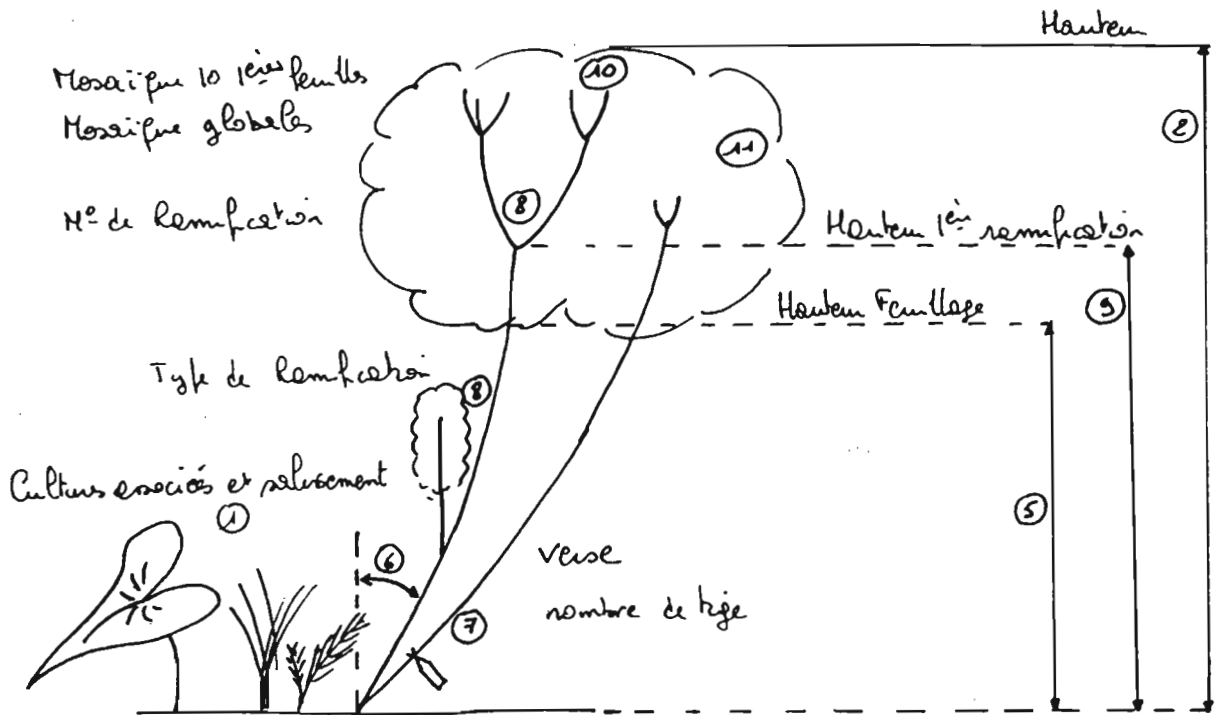 Hauteur
Mosaïque 10 1ères feuilles
10
Mosaïque globales
2
11
Nº de Ramification
8
Hauteur 1ère ramification
Hauteur Feuillage
9
Type de Ramification
8
Cultures associés et salissement
1
5
6
Verse
nombre de tige
7